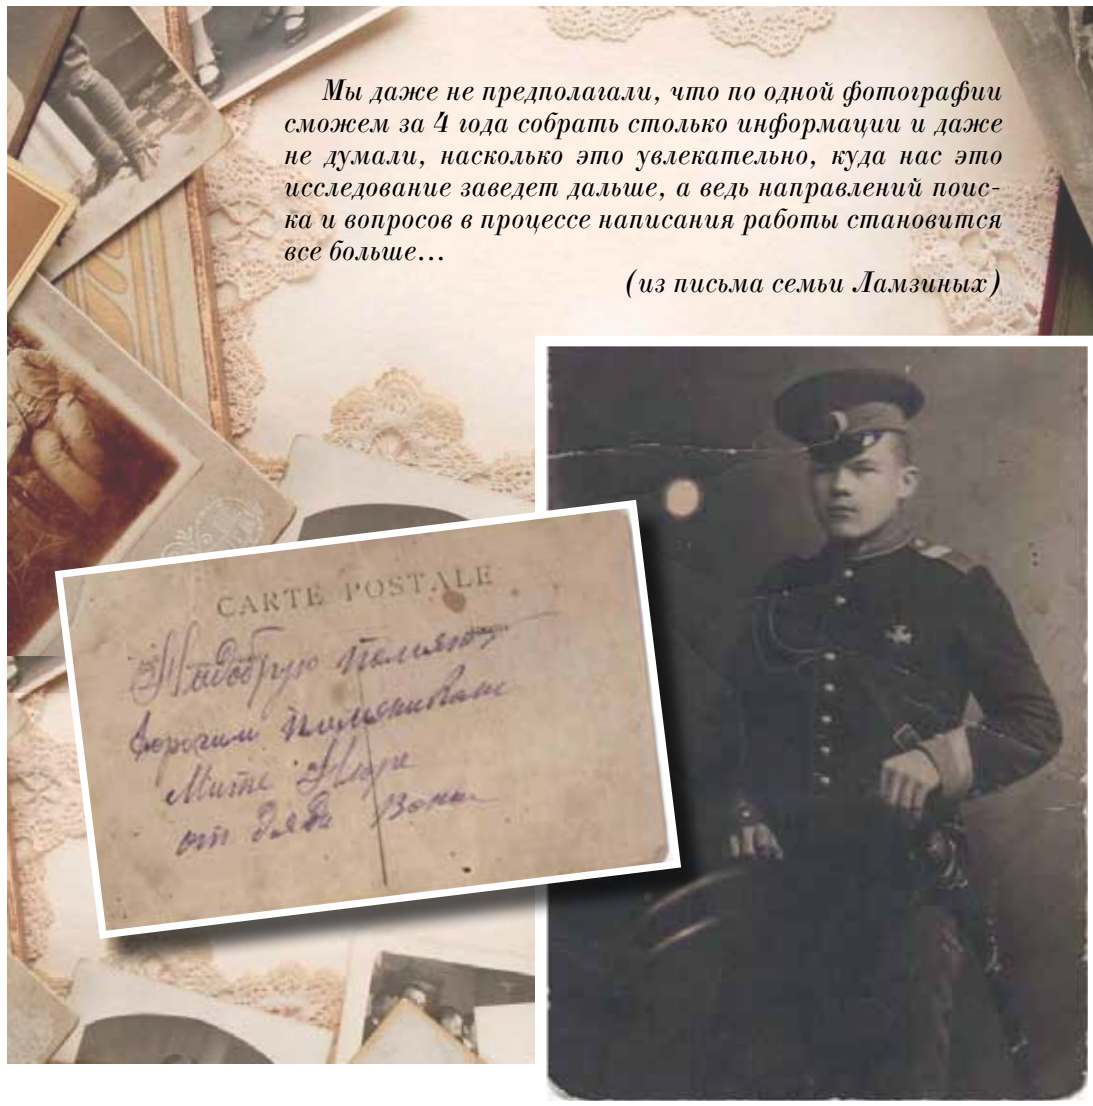 Мы даже не предполагали, что по одной фотографии
сможем за 4 года собрать столько информации и даже
не думали, насколько это увлекательно, куда нас это
исследование заведет дальше, а ведь направлений поис-
ка и вопросов в процессе написания работы становится
все больше...
(из письма семьи Ламзиных)
CARTE POSTALE
На добрую память
дорогим племянникам
Мите Нюре
от дяди Вани